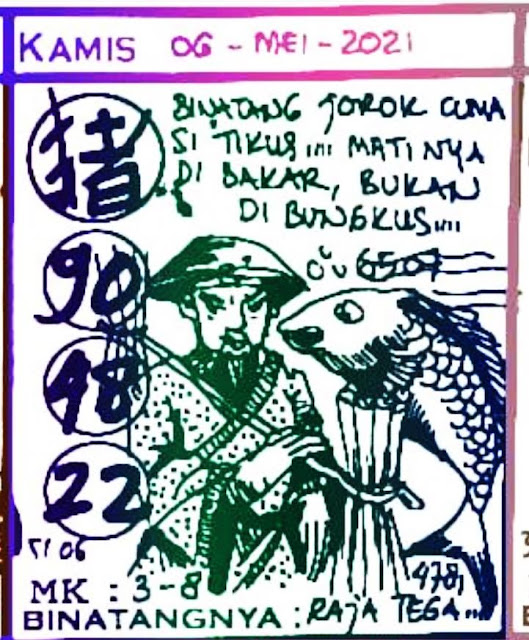 KAMIS 06 - MEI - 2021
BINATANG JOROK CUMA
SI TIKUS.... MATINYA
DI BAKAR, BUKAN
DI BUNGKUS....
猪
90
48
22
6507
06
478,
MK : 3-8
BINATANGNYA : RAJA TEGA....